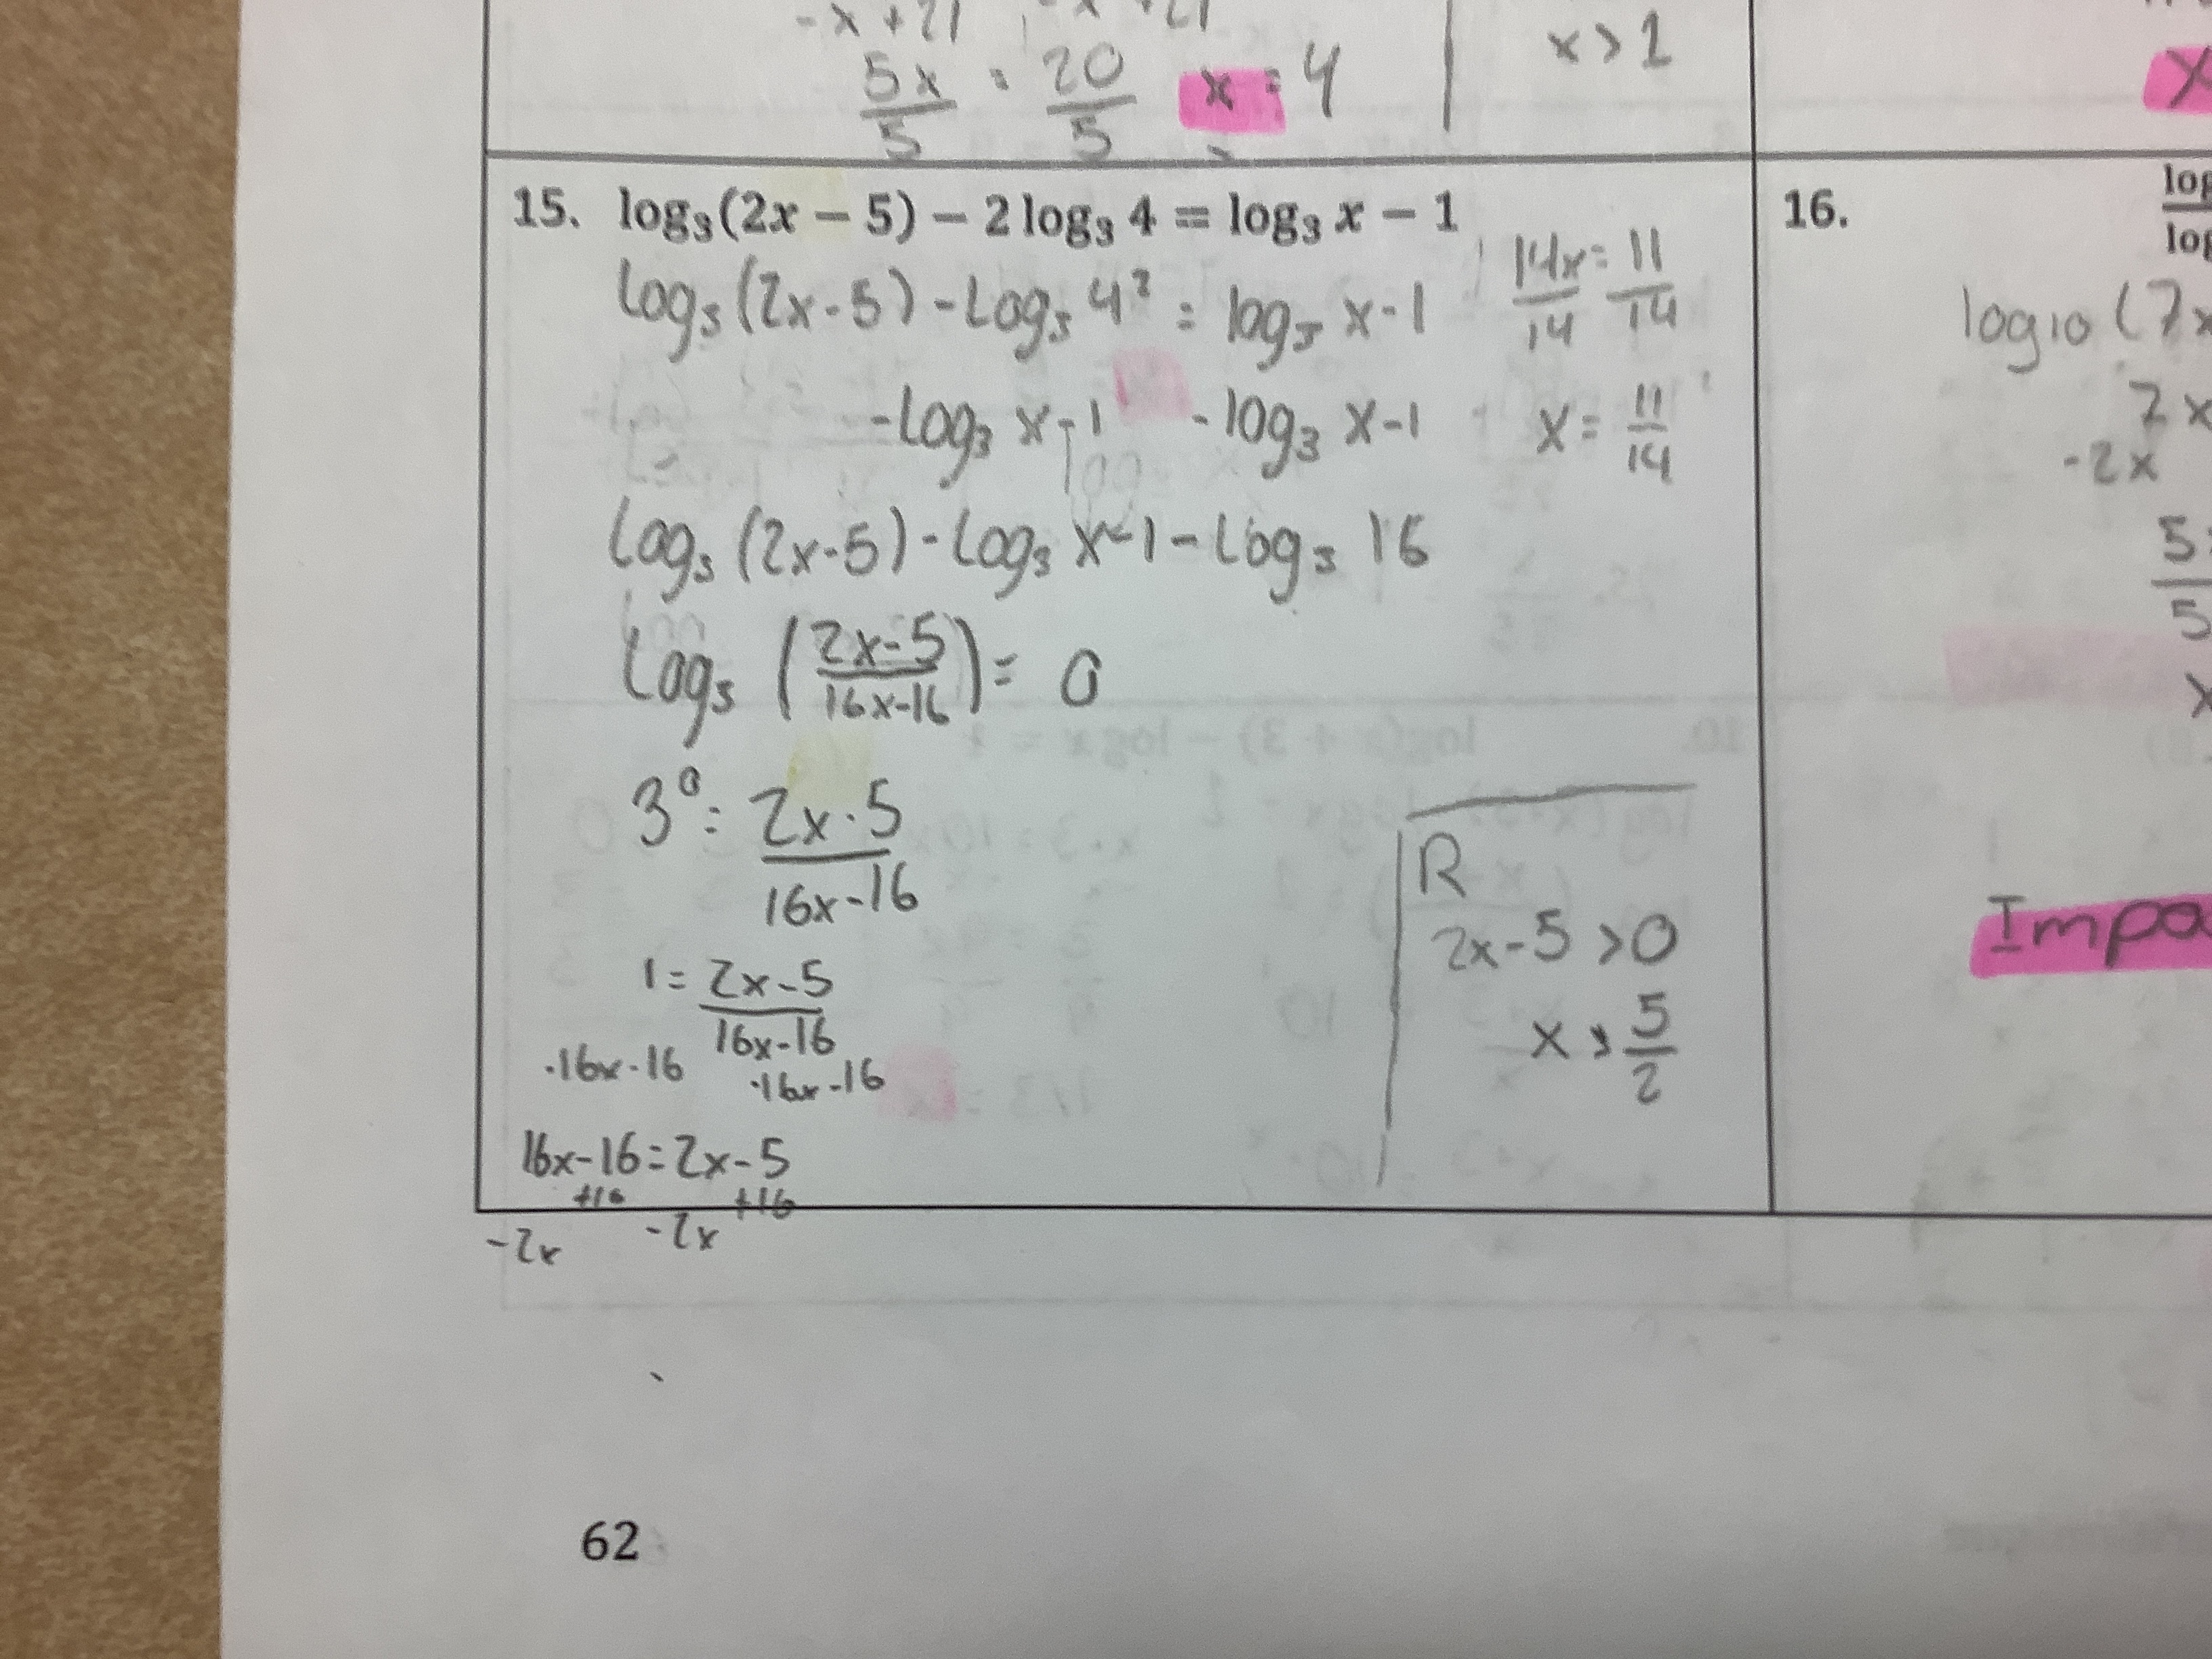 -x +21 -x +21
5x = 20 x = 4
5 5
x > 1
x
15. log₃(2x − 5) − 2 log₃ 4 = log₃ x − 1
Log₃ (2x-5) - Log₃ 4² = log₃ x-1
-Log₃ x-1 -log₃ x-1
Log₃ (2x-5) - Log₃ x-1 - Log₃ 16
Log₃ (2x-5/16x-16) = 0
3⁰ = 2x-5
16x-16
1 = 2x-5
16x-16
·16x-16 ·16x-16
16x-16 = 2x-5
+16 +16
-2x -2x
14x = 11
14 14
x = 11
14
R
2x-5 >0
x > 5
2
16. log
log
log10 (7x
7x
-2x
5
5
x
Impo
10. log(x + 3) − log x = 1
62